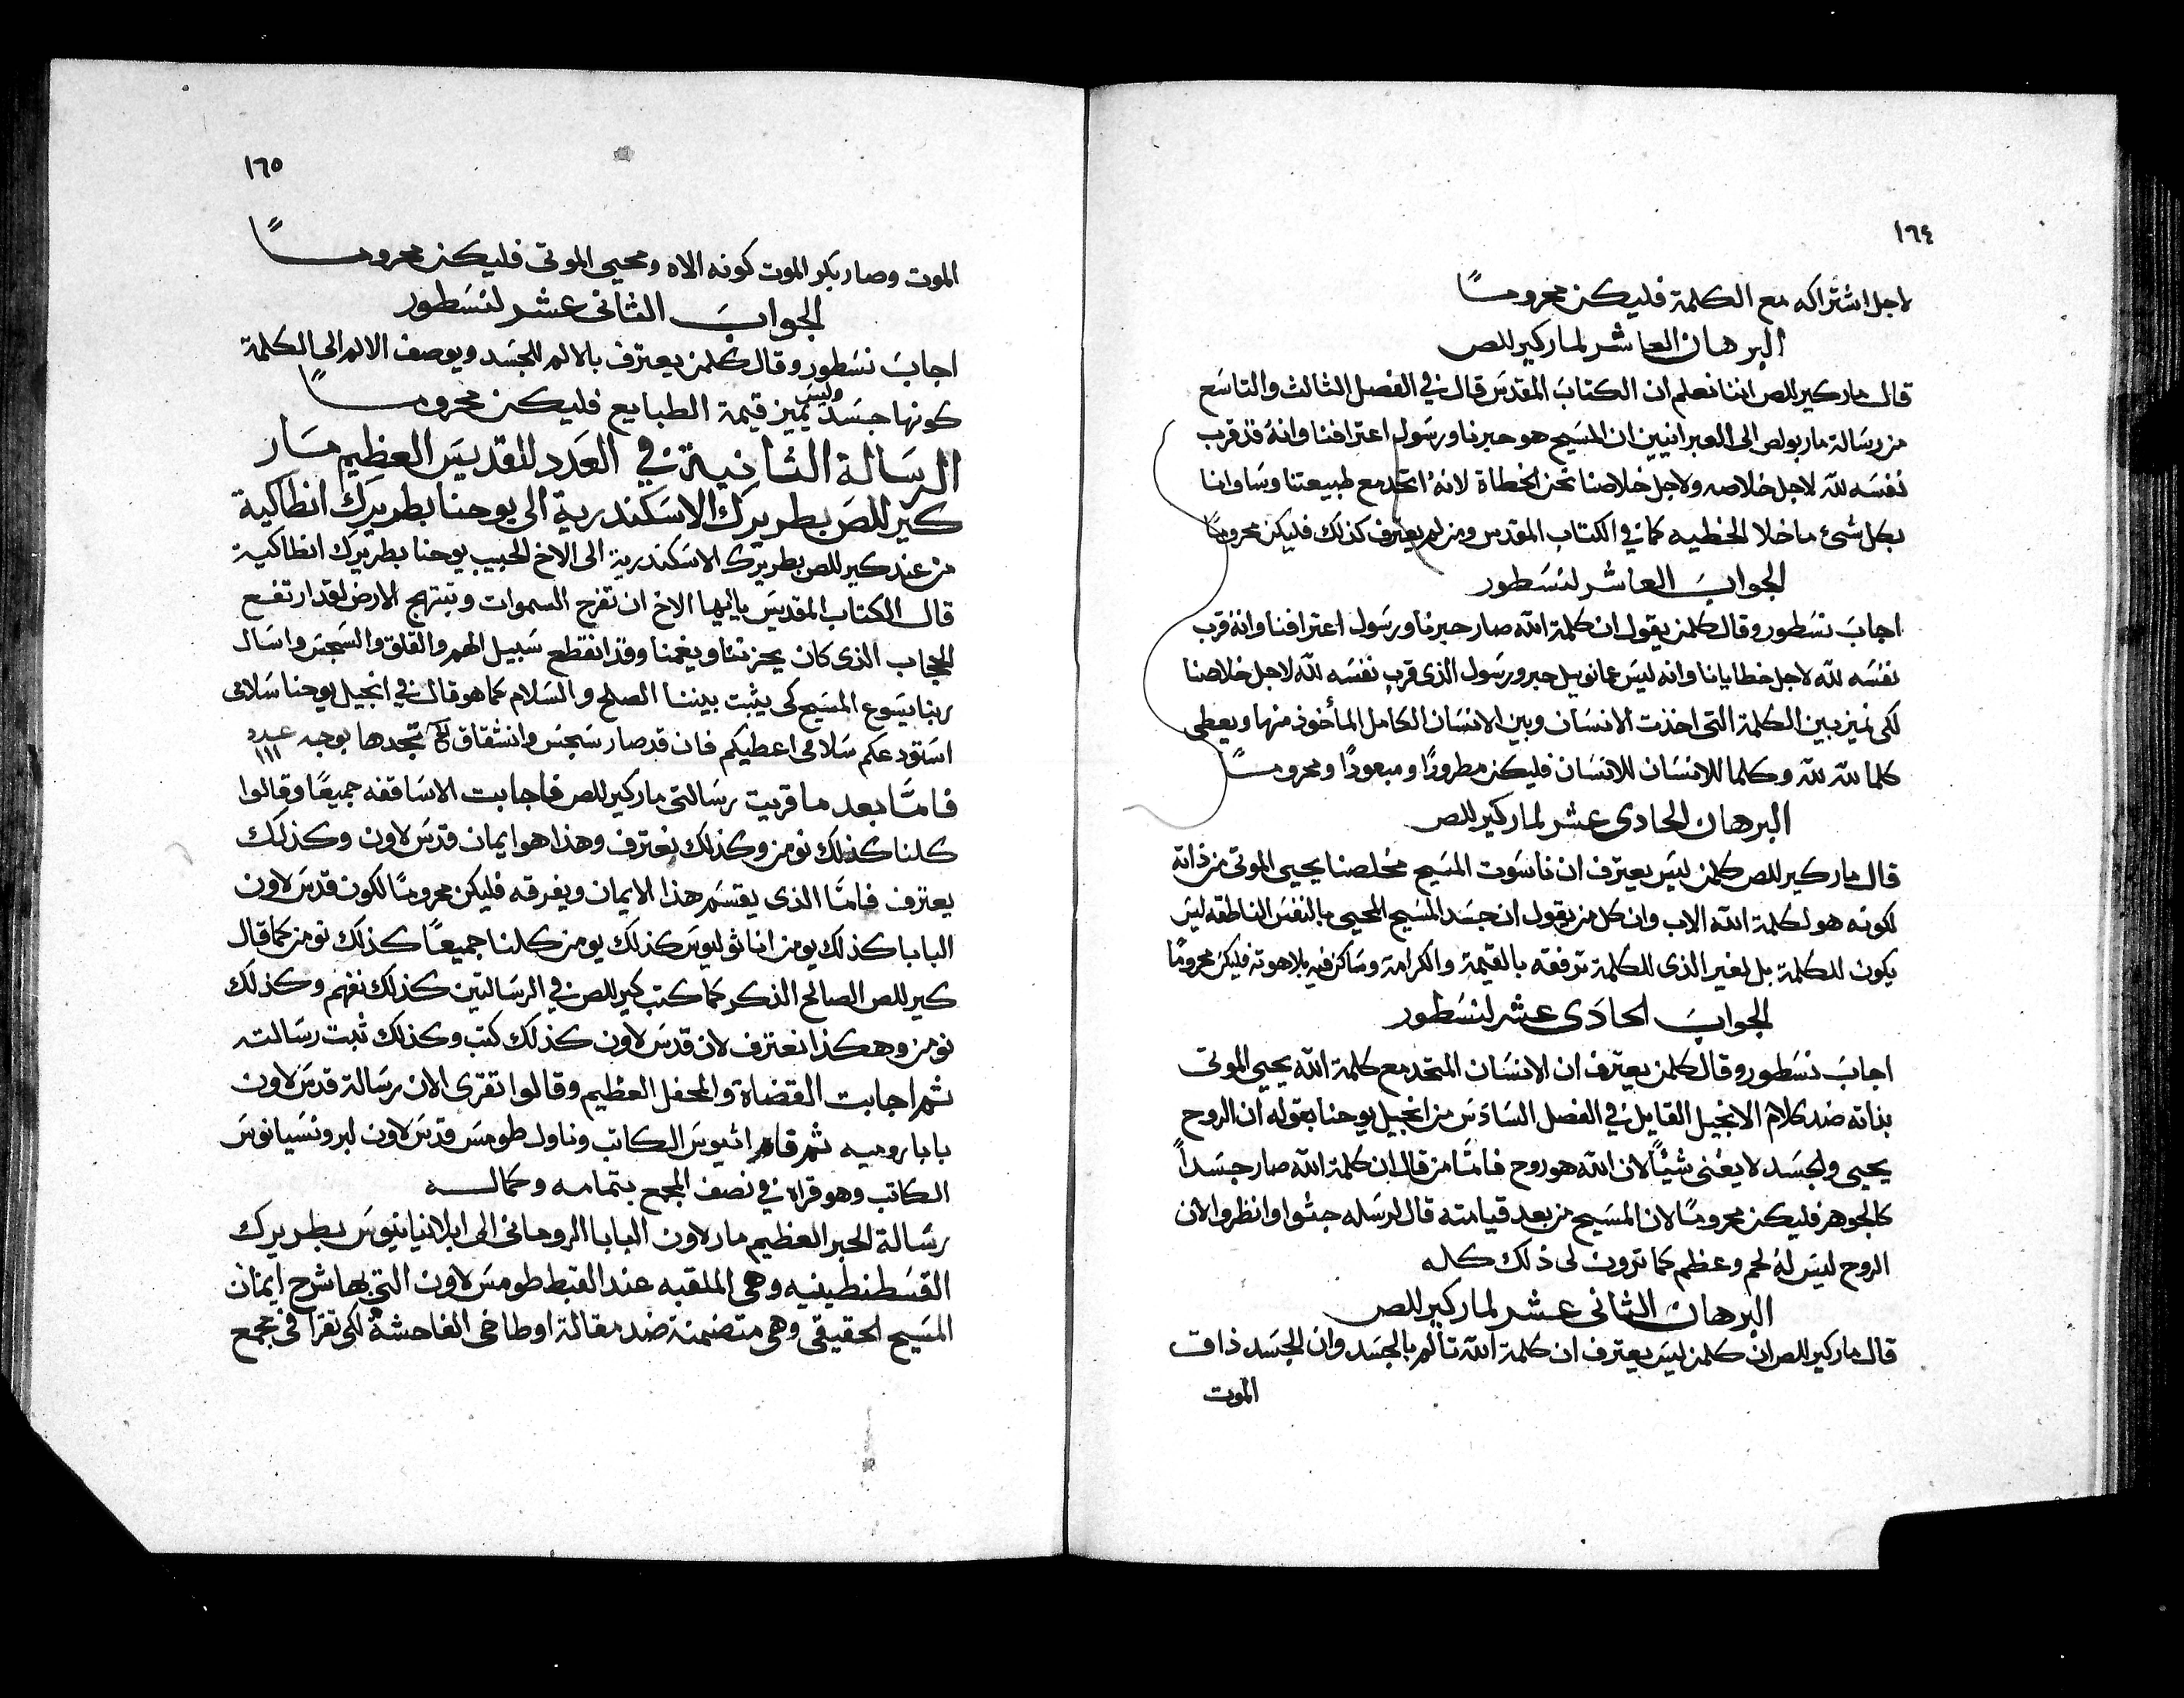 ١٦٤
لاجل اشتراكه مع الكلمة فليكن محروماً
البرهان العاشر لمار كيرللص
قال مار كيرللص اننا نعلم ان الكتاب المقدس قال في الفصل الثالث والتاسع
من رسالة مار بولص الى العبرانيين ان المسيح هو حبرنا ورسول اعترافنا وانه قد قرب
نفسه لله لاجل خلاصه ولاجل خلاصنا نحن الخطاة لانه اتحد مع طبيعتنا وساوانا
بكل شئ ما خلا الخطيه كما في الكتاب المقدس ومن لم يعترف كذلك فليكن محروماً
الجواب العاشر لنسطور
اجاب نسطور وقال كلمن يقول ان كلمة الله صار حبرنا ورسول اعترافنا وانه قرب
نفسه لله لاجل خطايانا وانه ليس عمانوييل حبر ورسول الذى قرب نفسه لله لاجل خلاصنا
لكى نميز بين الكلمة التى اخذت الانسان وبين الانسان الكامل المأخوذ منها ويعطى
كلما لله لله وكلما للانسان للانسان فليكن مطرودًا ومبعودًا ومحروماً
البرهان الحادى عشر لمار كيرللص
قال مار كيرللص كلمن ليس يعترف ان ناسوت المسيح مخلصنا يحيى الموتى من ذاته
لكونه هو لكلمة الله الاب وان كل من يقول ان جسد المسيح المحيى بالنفس الناطقه ليس
يكون للكلمة بل لغير الذى للكلمة ترفقه بالقيمة والكرامة وساكن فيه بلاهوته فليكن محرومًا
الجواب الحادى عشر لنسطور
اجاب نسطور وقال كلمن يعترف ان الانسان المتحد مع كلمة الله يحيى الموتى
بذاته ضد كلام الانجيل القايل في الفصل السادس من انجيل يوحنا بقوله ان الروح
يحيى والجسد لا يغنى شيئًا لان الله هو روح فامّا من قال ان كلمة الله صار جسداً
كالجوهر فليكن محرومًا لان المسيح من بعد قيامته قال لرسله جثوا وانظروا لان
الروح ليس له لحم وعظم كما ترون لى ذلك كله
البرهان الثانى عشر لمار كيرللص
قال مار كيرللص ان كلمن ليس يعترف ان كلمة الله تألم بالجسد وان الجسد ذاق
الموت
١٦٥
الموت وصار بكر الموت كونه الاه ومحيى الموتى فليكن محروماً
الجواب الثانى عشر لنسطور
اجاب نسطور وقال كلمن يعترف بالالم للجسد ويوصف الالم الى الكلمة
كونها جسد وليس يميز قيمة الطبايع فليكن محروماً
الرسالة الثانية في العدد للقديس العظيم مار
كيرللص بطريرك الاسكندرية الى يوحنا بطريرك انطاكية
من عند كيرللص بطريرك الاسكندرية الى الاخ الحبيب يوحنا بطريرك انطاكية
قال الكتاب المقدس يا ايها الاخ ان تفرح السموات وتبتهج الارض لقد ارتفع
الحجاب الذى كان يحزننا ويغمنا وقد انقطع سبيل الهم والقلق والسجس واسال
ربنا يسوع المسيح كى يثبت بيننا الصلح والسلام كما هو قال في انجيل يوحنا سلامى
استودعكم سلامى اعطيكم فان قد صار سجس وانشقاق تجدها بوجه عدد ١١١
فامّا بعد ما قريت رسالتى مار كيرللص فاجابت الاساقفه جميعًا وقالوا
كلنا كذلك نومن وكذلك نعترف وهذا هو ايمان قدس لاون وكذلك
يعترف فامّا الذى يقتسم هذا الايمان ويفرقه فليكن محرومًا لكون قدس لاون
البابا كذلك يومن اناثوليوس كذلك يومن كلنا جميعًا كذلك نومن كما قال
كيرللص الصالح الذكر كما كتب كيرللص في الرسالتين كذلك نفهم وكذلك
نومن وهكذا نعترف لان قدس لاون كذلك كتب وكذلك ثبت رسالته
ثم اجابت القضاة والمحفل العظيم وقالوا تقرى الان رسالة قدس لاون
بابا روميه ثم قام اتيوس الكاتب وناول طومس قدس لاون لبرونسيانوس
الكاتب وهو قراه في نصف المجمع بتمامه وكماله
رسالة الحبر العظيم مار لاون البابا الرومانى الى ابلانيانيوس بطريرك
القسطنطينيه وهى الملقبه عند القبط طومس لاون التى بها شرح ايمان
المسيح الحقيقى وهى متضمنة ضد مقالة اوطاخى الفاحشة لكى تقرا في مجمع